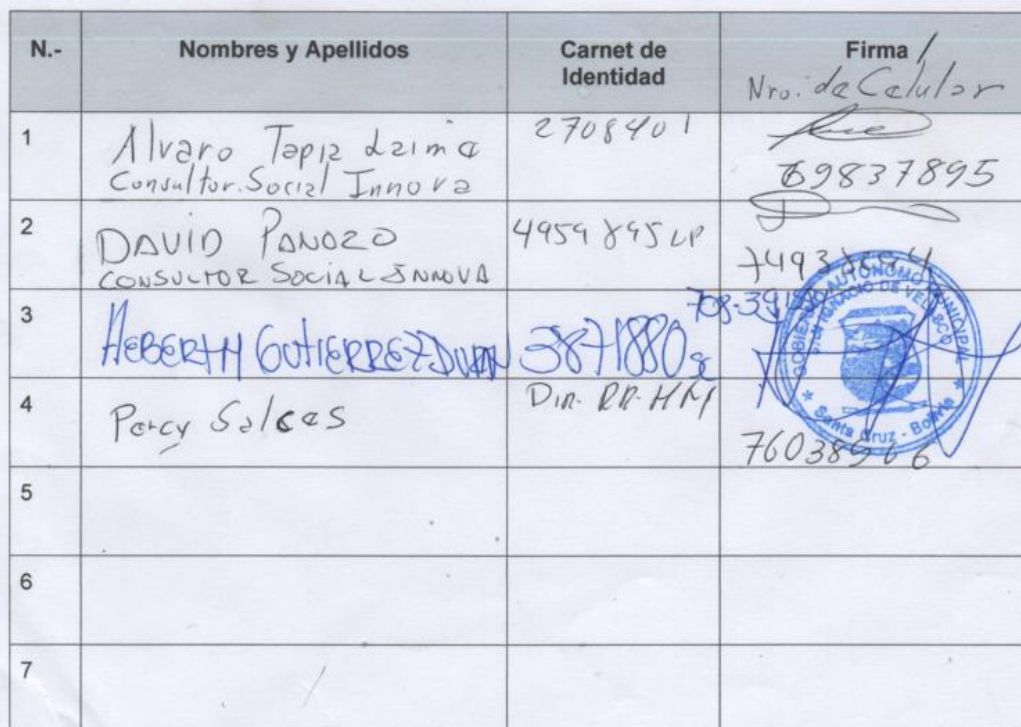 N.- Nombres y Apellidos Carnet de Identidad Firma /
Nro. de Celular
1 Alvaro Tapia Laime 2708401
Consultor Social Innova 69837895
2 DAVID PANOZO 4959895 LP
CONSULTOR SOCIAL INNOVA
3 HEBERTH GUTIERREZ DURAN 3871880
4 Percy Salces Dir. RR-HH
76038966
GOBIERNO AUTÓNOMO MUNICIPAL
SAN IGNACIO DE VELASCO
Santa Cruz - Bolivia
5
6
7